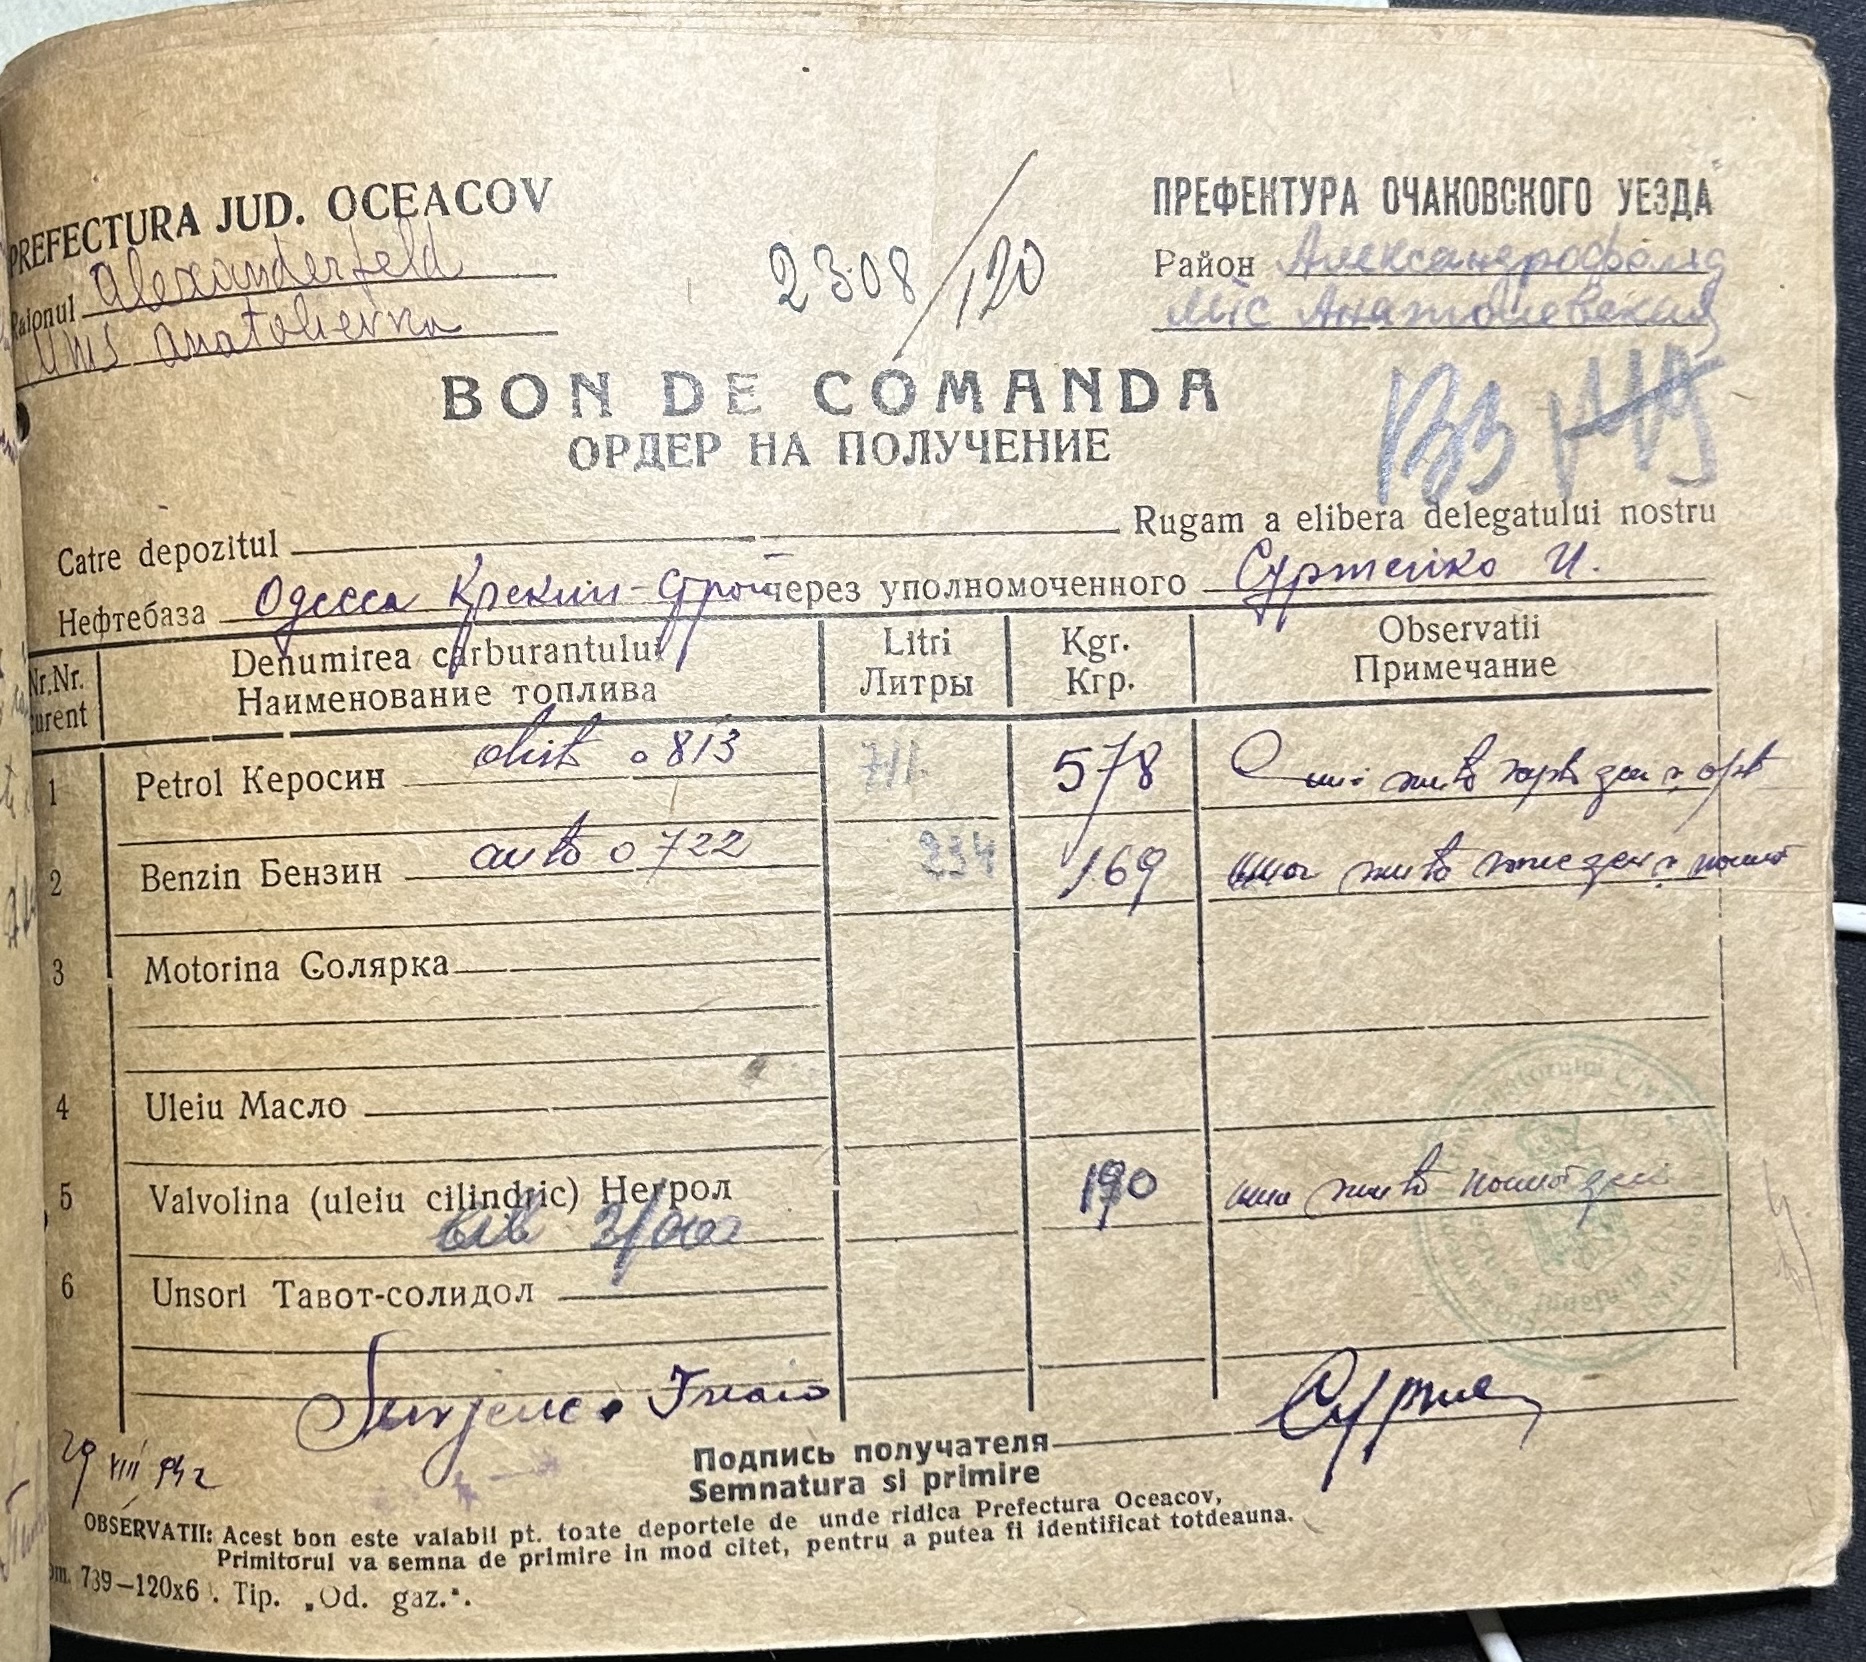 PREFECTURA JUD. OCEACOV
ПРЕФЕКТУРА ОЧАКОВСКОГО УЕЗДА
Raionul Alexanderfeld
Ums Anatolievka
2308/120
Район Александрофельд
Мтс Анатолиевская
BON DE COMANDA
ОРДЕР НА ПОЛУЧЕНИЕ
Catre depozitul
Rugam a elibera delegatului nostru
Нефтебаза Одесса Крекин-Строй
через уполномоченного Сурженко И.
Nr.Nr. curent
Denumirea carburantului
Наименование топлива
Litri
Литры
Kgr.
Кгр.
Observatii
Примечание
1 Petrol Керосин 0813 711 578
2 Benzin Бензин auto 0722 234 169
3 Motorina Солярка
4 Uleiu Масло
5 Valvolina (uleiu cilindric) Негрол 190
6 Unsori Тавот-солидол
Подпись получателя
Semnatura si primire
29 VIII 942
OBSERVATII: Acest bon este valabil pt. toate deportele de unde ridica Prefectura Oceacov,
Primitorul va semna de primire in mod citet, pentru a putea fi identificat totdeauna.
739—120x6 . Tip. „Od. gaz.".